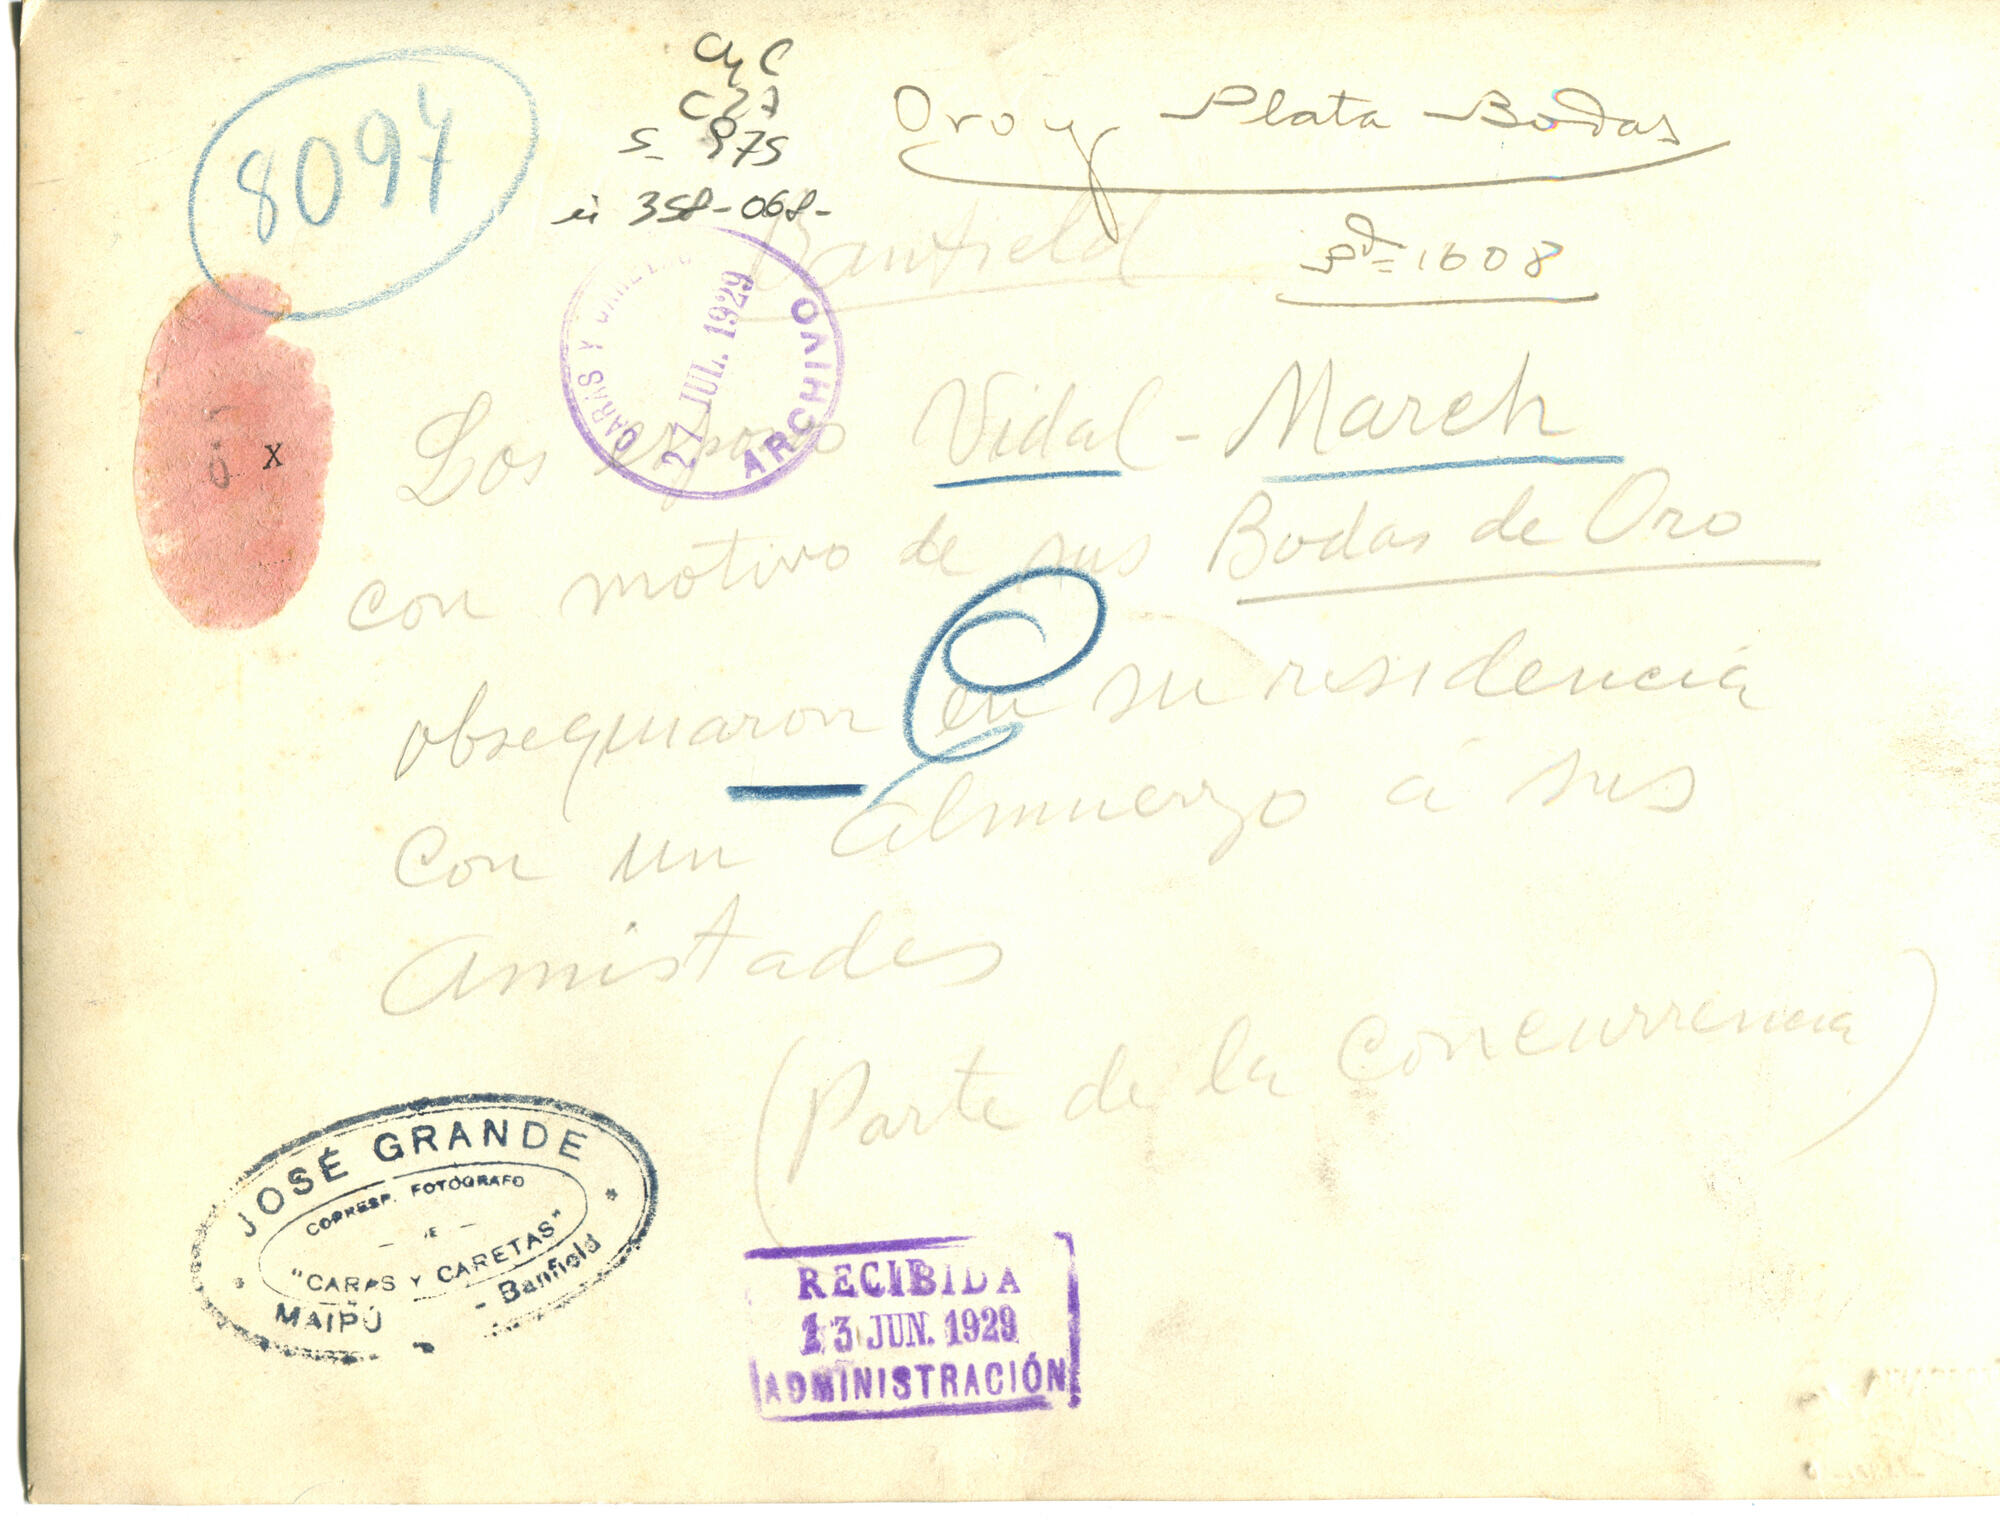 8094
CyC
C27
S- 975
ii 358-068-
Oro y Plata Bodas
Pd=1608
Banfield
CARAS Y CARETAS
27 JUL. 1929
ARCHIVO
x
Los esposos Vidal - March
con motivo de sus Bodas de Oro
obsequiaron en su residencia
con un almuerzo á sus
amistades
(Parte de la concurrencia)
JOSÉ GRANDE
CORRESP. FOTÓGRAFO
"CARAS Y CARETAS"
MAIPÚ - Banfield
RECIBIDA
13 JUN. 1929
ADMINISTRACIÓN